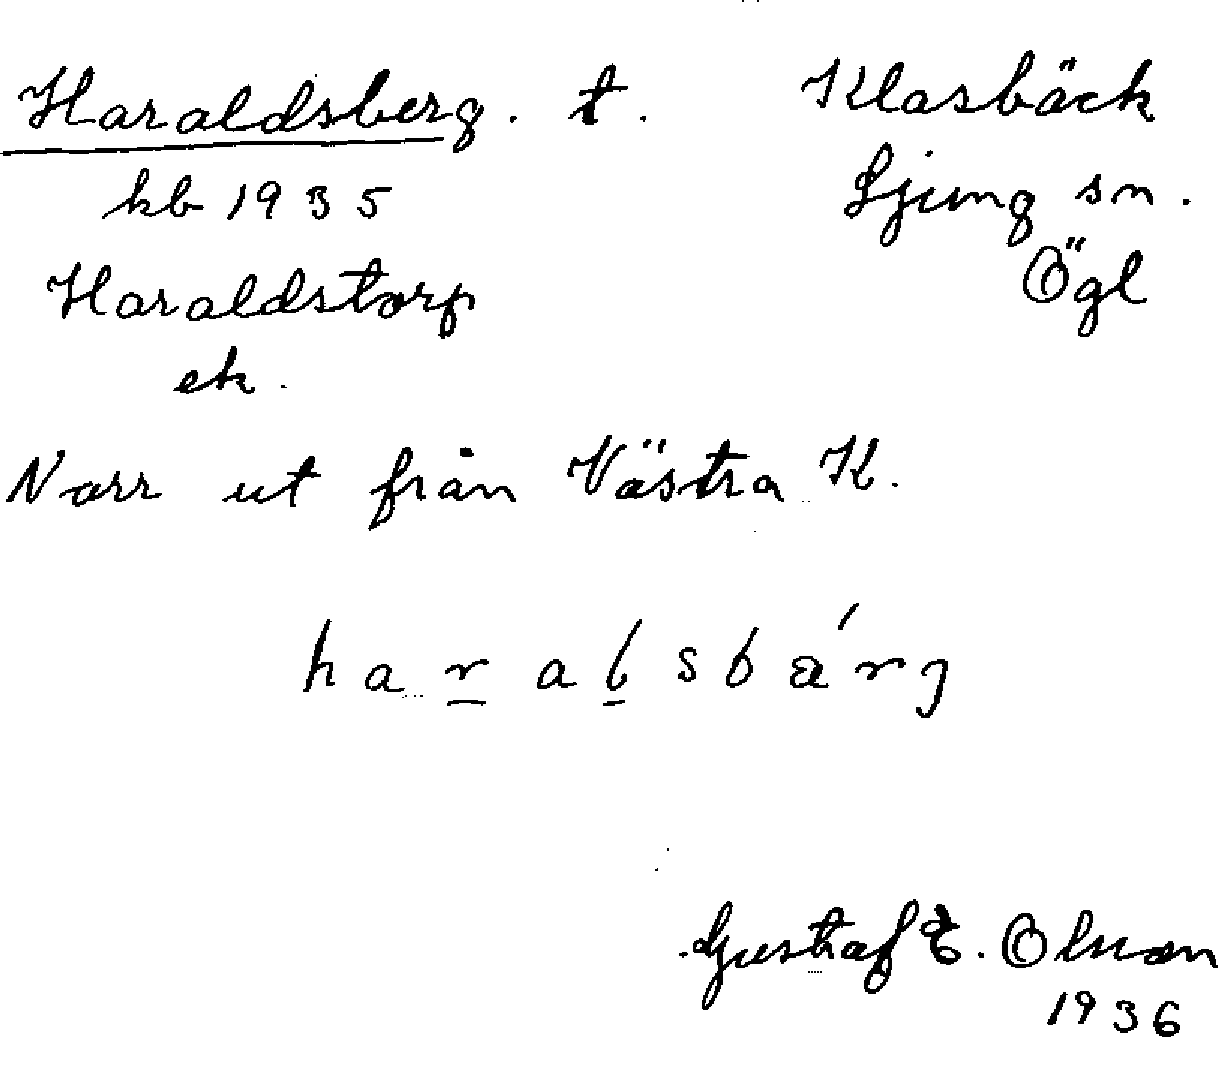 Haraldsberg. t. Klasbäck
kb 1935 Ljung sn.
Haraldstorp Ögl
ek.
Norr ut från Västra K.
haralsbárj
Gustaf E. Olsson
1936